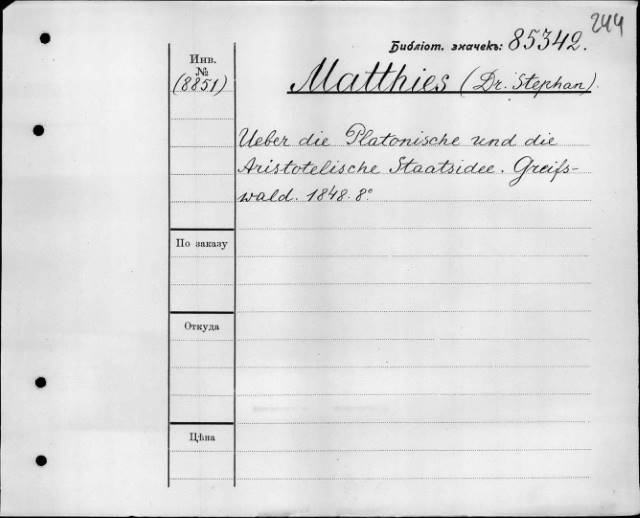 244
Библіот. значекъ: 85342.
Инв.
№
(8851)
Matthies (Dr. Stephan).
Ueber die Platonische und die
Aristotelische Staatsidee. Greifs-
wald. 1848. 8°
По заказу
Откуда
Цѣна